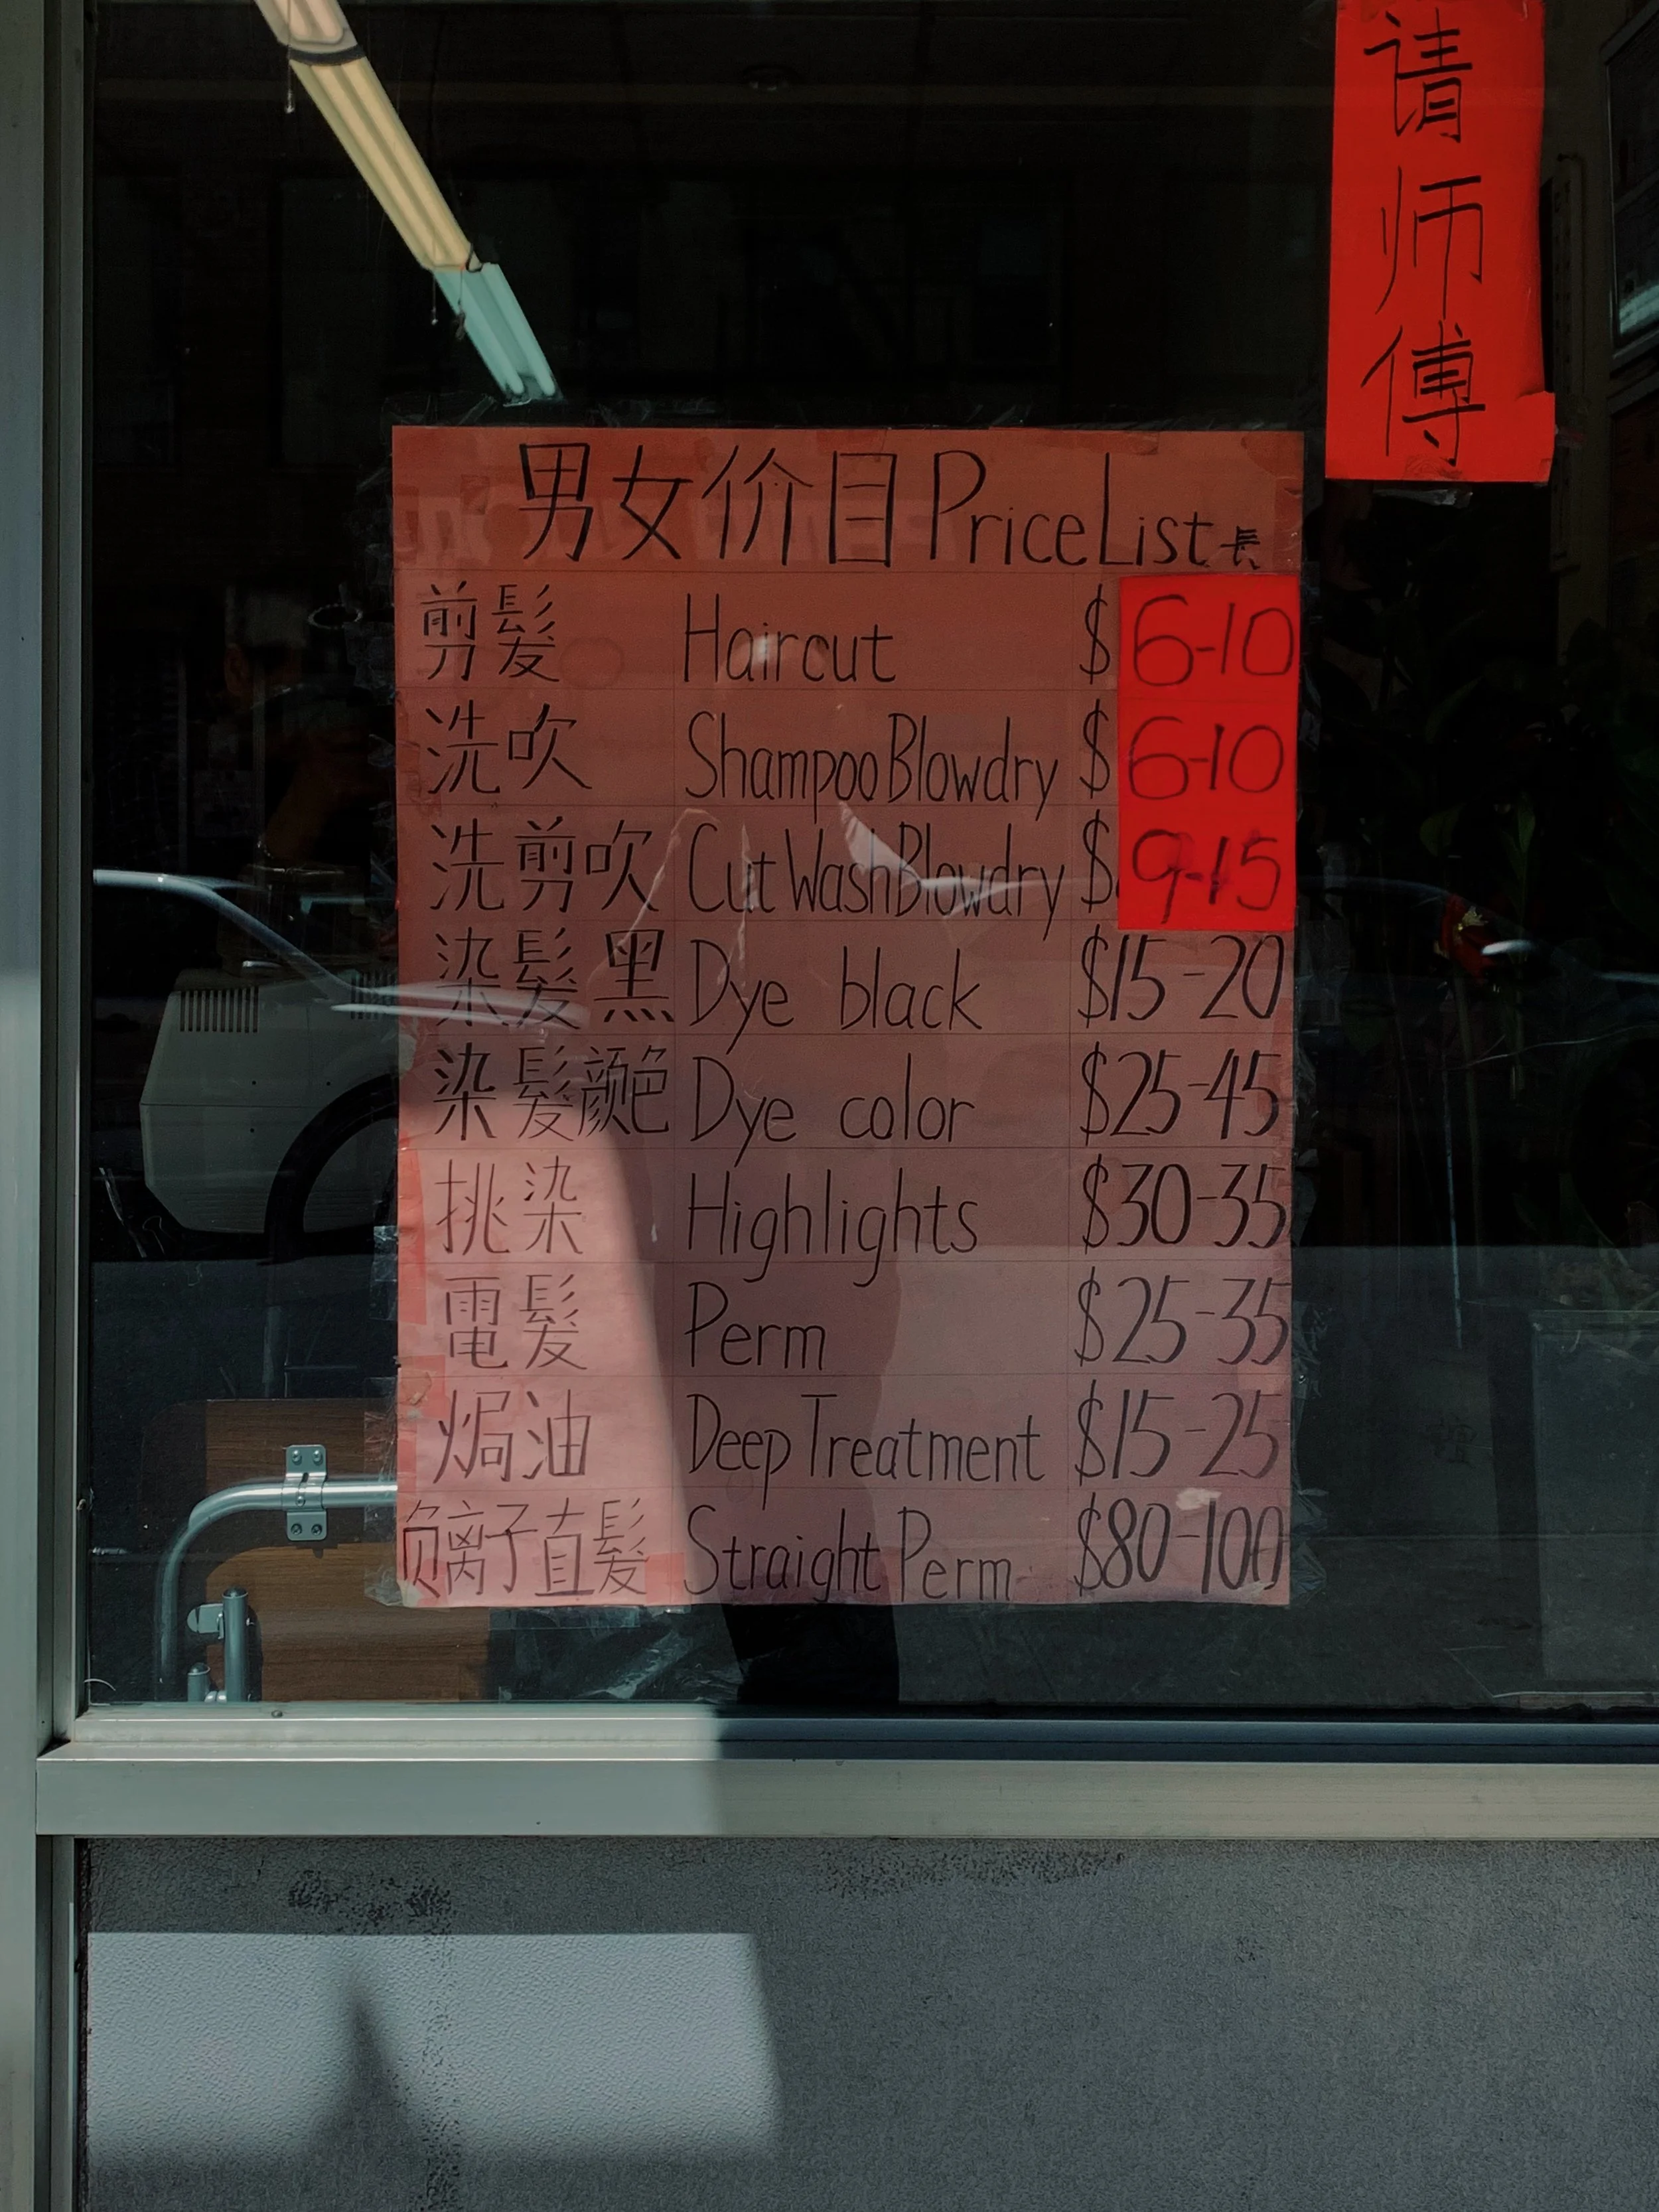 请师傅
男女价目PriceList表
剪髮 Haircut $6-10
洗吹 Shampoo Blowdry $6-10
洗剪吹 Cut Wash Blowdry $9-15
染髮黑 Dye black $15-20
染髮颜色 Dye color $25-45
挑染 Highlights $30-35
電髮 Perm $25-35
焗油 Deep Treatment $15-25
负离子直髮 Straight Perm $80-100